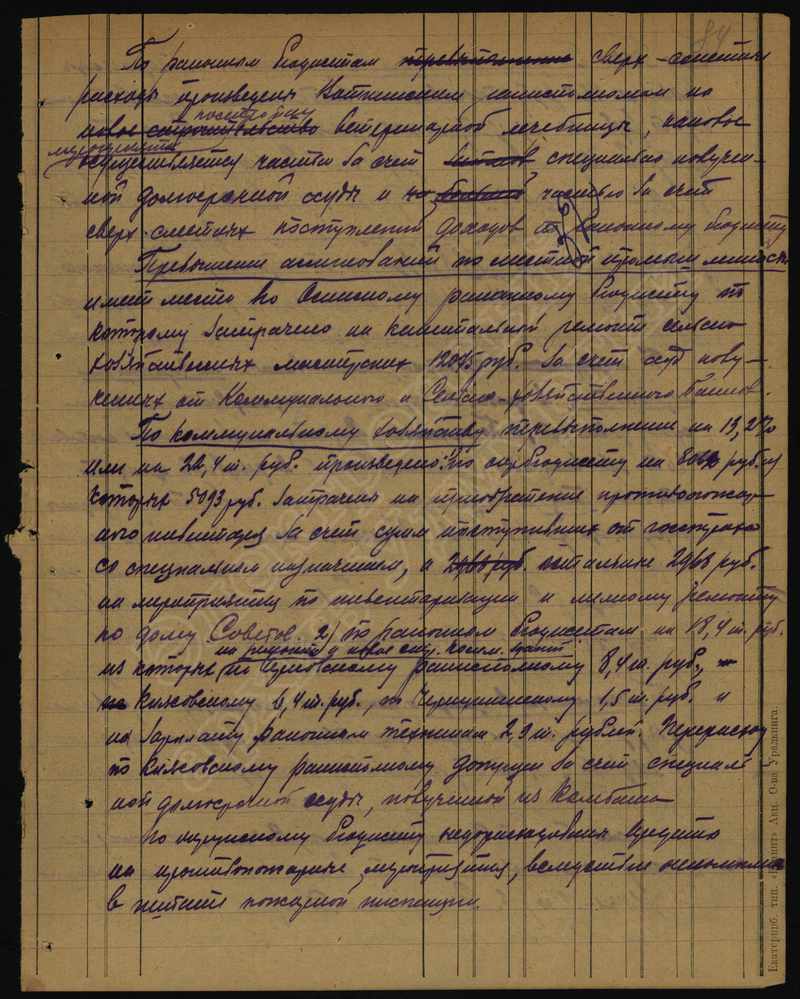 84
По районным бюджетам ~~перевыполнение~~ сверх-сметные
расходы произведены райисполкомом на
постройку
новое ~~строительство~~ ветеринарной лечебницы, каковое
мероприятие
осуществляется частью за счет специально получен-
ной долгосрочной ссуды и ~~большей~~ частью за счет
сверх-сметных поступлений доходов по районному бюджету
Превышение ассигнований по местной промышленности
имеет место по Осинскому районному бюджету по
которому затрачено на капитальный ремонт сельско
хозяйственных мастерских 12045 руб. за счет ссуд полу-
ченных от Коммунального и Сельско-хозяйственного банков.
По коммунальному хозяйству перевыполнение на 13,2%
или на 22,4 т. руб. произведено: по окрбюджету на руб. из
которых 5093 руб. затрачены на приобретение противопожар-
ного инвентаря за счет сумм поступивших от госстраха
со специальным назначением, а ~~2968 руб.~~ остальные 2968 руб.
на мероприятия по инвентаризации и мелкому ремонту
по дому Советов. 2) по районным бюджетам на 18,4 т. руб.
на ремонт и новое комм. зданий
из которых по райисполкому 8,4 т. руб.,
6,4 т. руб., по Чернушинскому 1,5 т. руб. и
на зарплату районным техникам 2,9 т. рублей. Перерасход
по райисполкому допущен за счет специаль
ной долгосрочной ссуды, полученной из Комбанка
По окружному бюджету недорасходованы кредиты
на противопожарные мероприятия, вследствие
в штате пожарной инспекции.
Екатеринб. тип. «Гранит» Акц. О-ва Уралкнига.